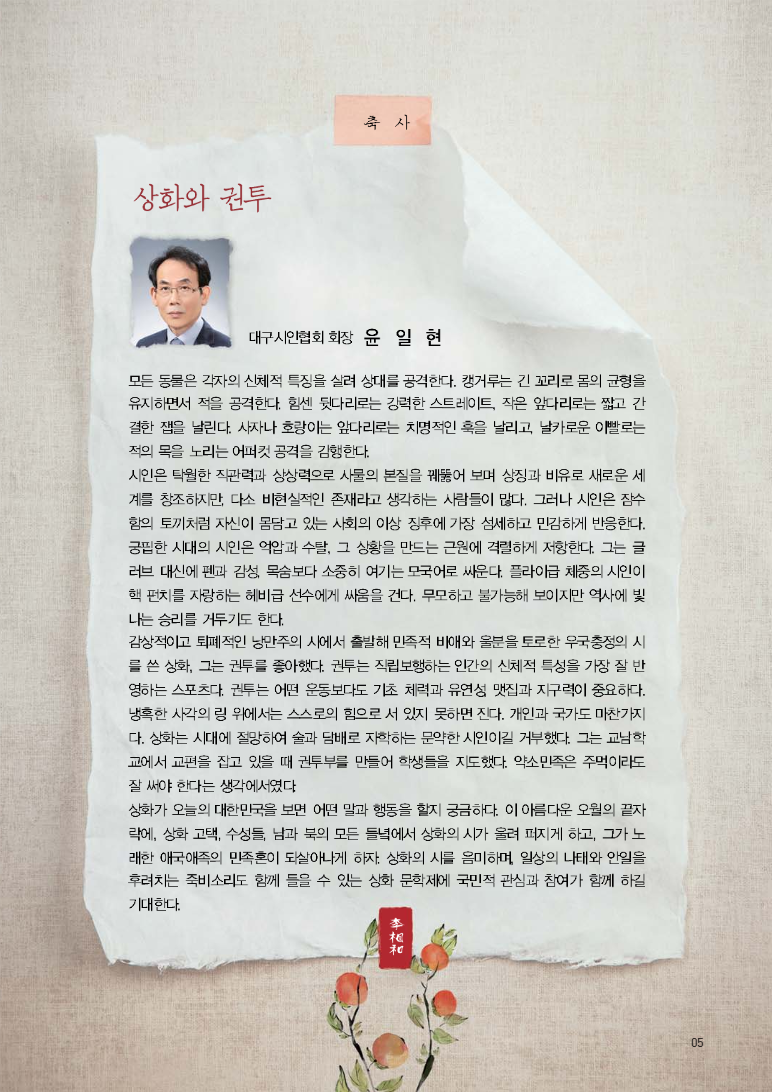 축 사
상화와 권투
대구시인협회 회장 윤 일 현
모든 동물은 각자의 신체적 특징을 살려 상대를 공격한다. 캥거루는 긴 꼬리로 몸의 균형을
유지하면서 적을 공격한다. 힘센 뒷다리로는 강력한 스트레이트, 작은 앞다리로는 짧고 간
결한 잽을 날린다. 사자나 호랑이는 앞다리로는 치명적인 훅을 날리고, 날카로운 이빨로는
적의 목을 노리는 어퍼컷 공격을 감행한다.
시인은 탁월한 직관력과 상상력으로 사물의 본질을 꿰뚫어 보며 상징과 비유로 새로운 세
계를 창조하지만, 다소 비현실적인 존재라고 생각하는 사람들이 많다. 그러나 시인은 잠수
함의 토끼처럼 자신이 몸담고 있는 사회의 이상 징후에 가장 섬세하고 민감하게 반응한다.
궁핍한 시대의 시인은 억압과 수탈, 그 상황을 만드는 근원에 격렬하게 저항한다. 그는 글
러브 대신에 펜과 감성, 목숨보다 소중히 여기는 모국어로 싸운다. 플라이급 체중의 시인이
핵 펀치를 자랑하는 헤비급 선수에게 싸움을 건다. 무모하고 불가능해 보이지만 역사에 빛
나는 승리를 거두기도 한다.
감상적이고 퇴폐적인 낭만주의 시에서 출발해 민족적 비애와 울분을 토로한 우국충정의 시
를 쓴 상화, 그는 권투를 좋아했다. 권투는 직립보행하는 인간의 신체적 특성을 가장 잘 반
영하는 스포츠다. 권투는 어떤 운동보다도 기초 체력과 유연성, 맷집과 지구력이 중요하다.
냉혹한 사각의 링 위에서는 스스로의 힘으로 서 있지 못하면 진다. 개인과 국가도 마찬가지
다. 상화는 시대에 절망하여 술과 담배로 자학하는 문약한 시인이길 거부했다. 그는 교남학
교에서 교편을 잡고 있을 때 권투부를 만들어 학생들을 지도했다. 약소민족은 주먹이라도
잘 써야 한다는 생각에서였다.
상화가 오늘의 대한민국을 보면 어떤 말과 행동을 할지 궁금하다. 이 아름다운 오월의 끝자
락에, 상화 고택, 수성들, 남과 북의 모든 들녘에서 상화의 시가 울려 퍼지게 하고, 그가 노
래한 애국애족의 민족혼이 되살아나게 하자. 상화의 시를 음미하며, 일상의 나태와 안일을
후려치는 죽비소리도 함께 들을 수 있는 상화 문학제에 국민적 관심과 참여가 함께 하길
기대한다.
李相和
05